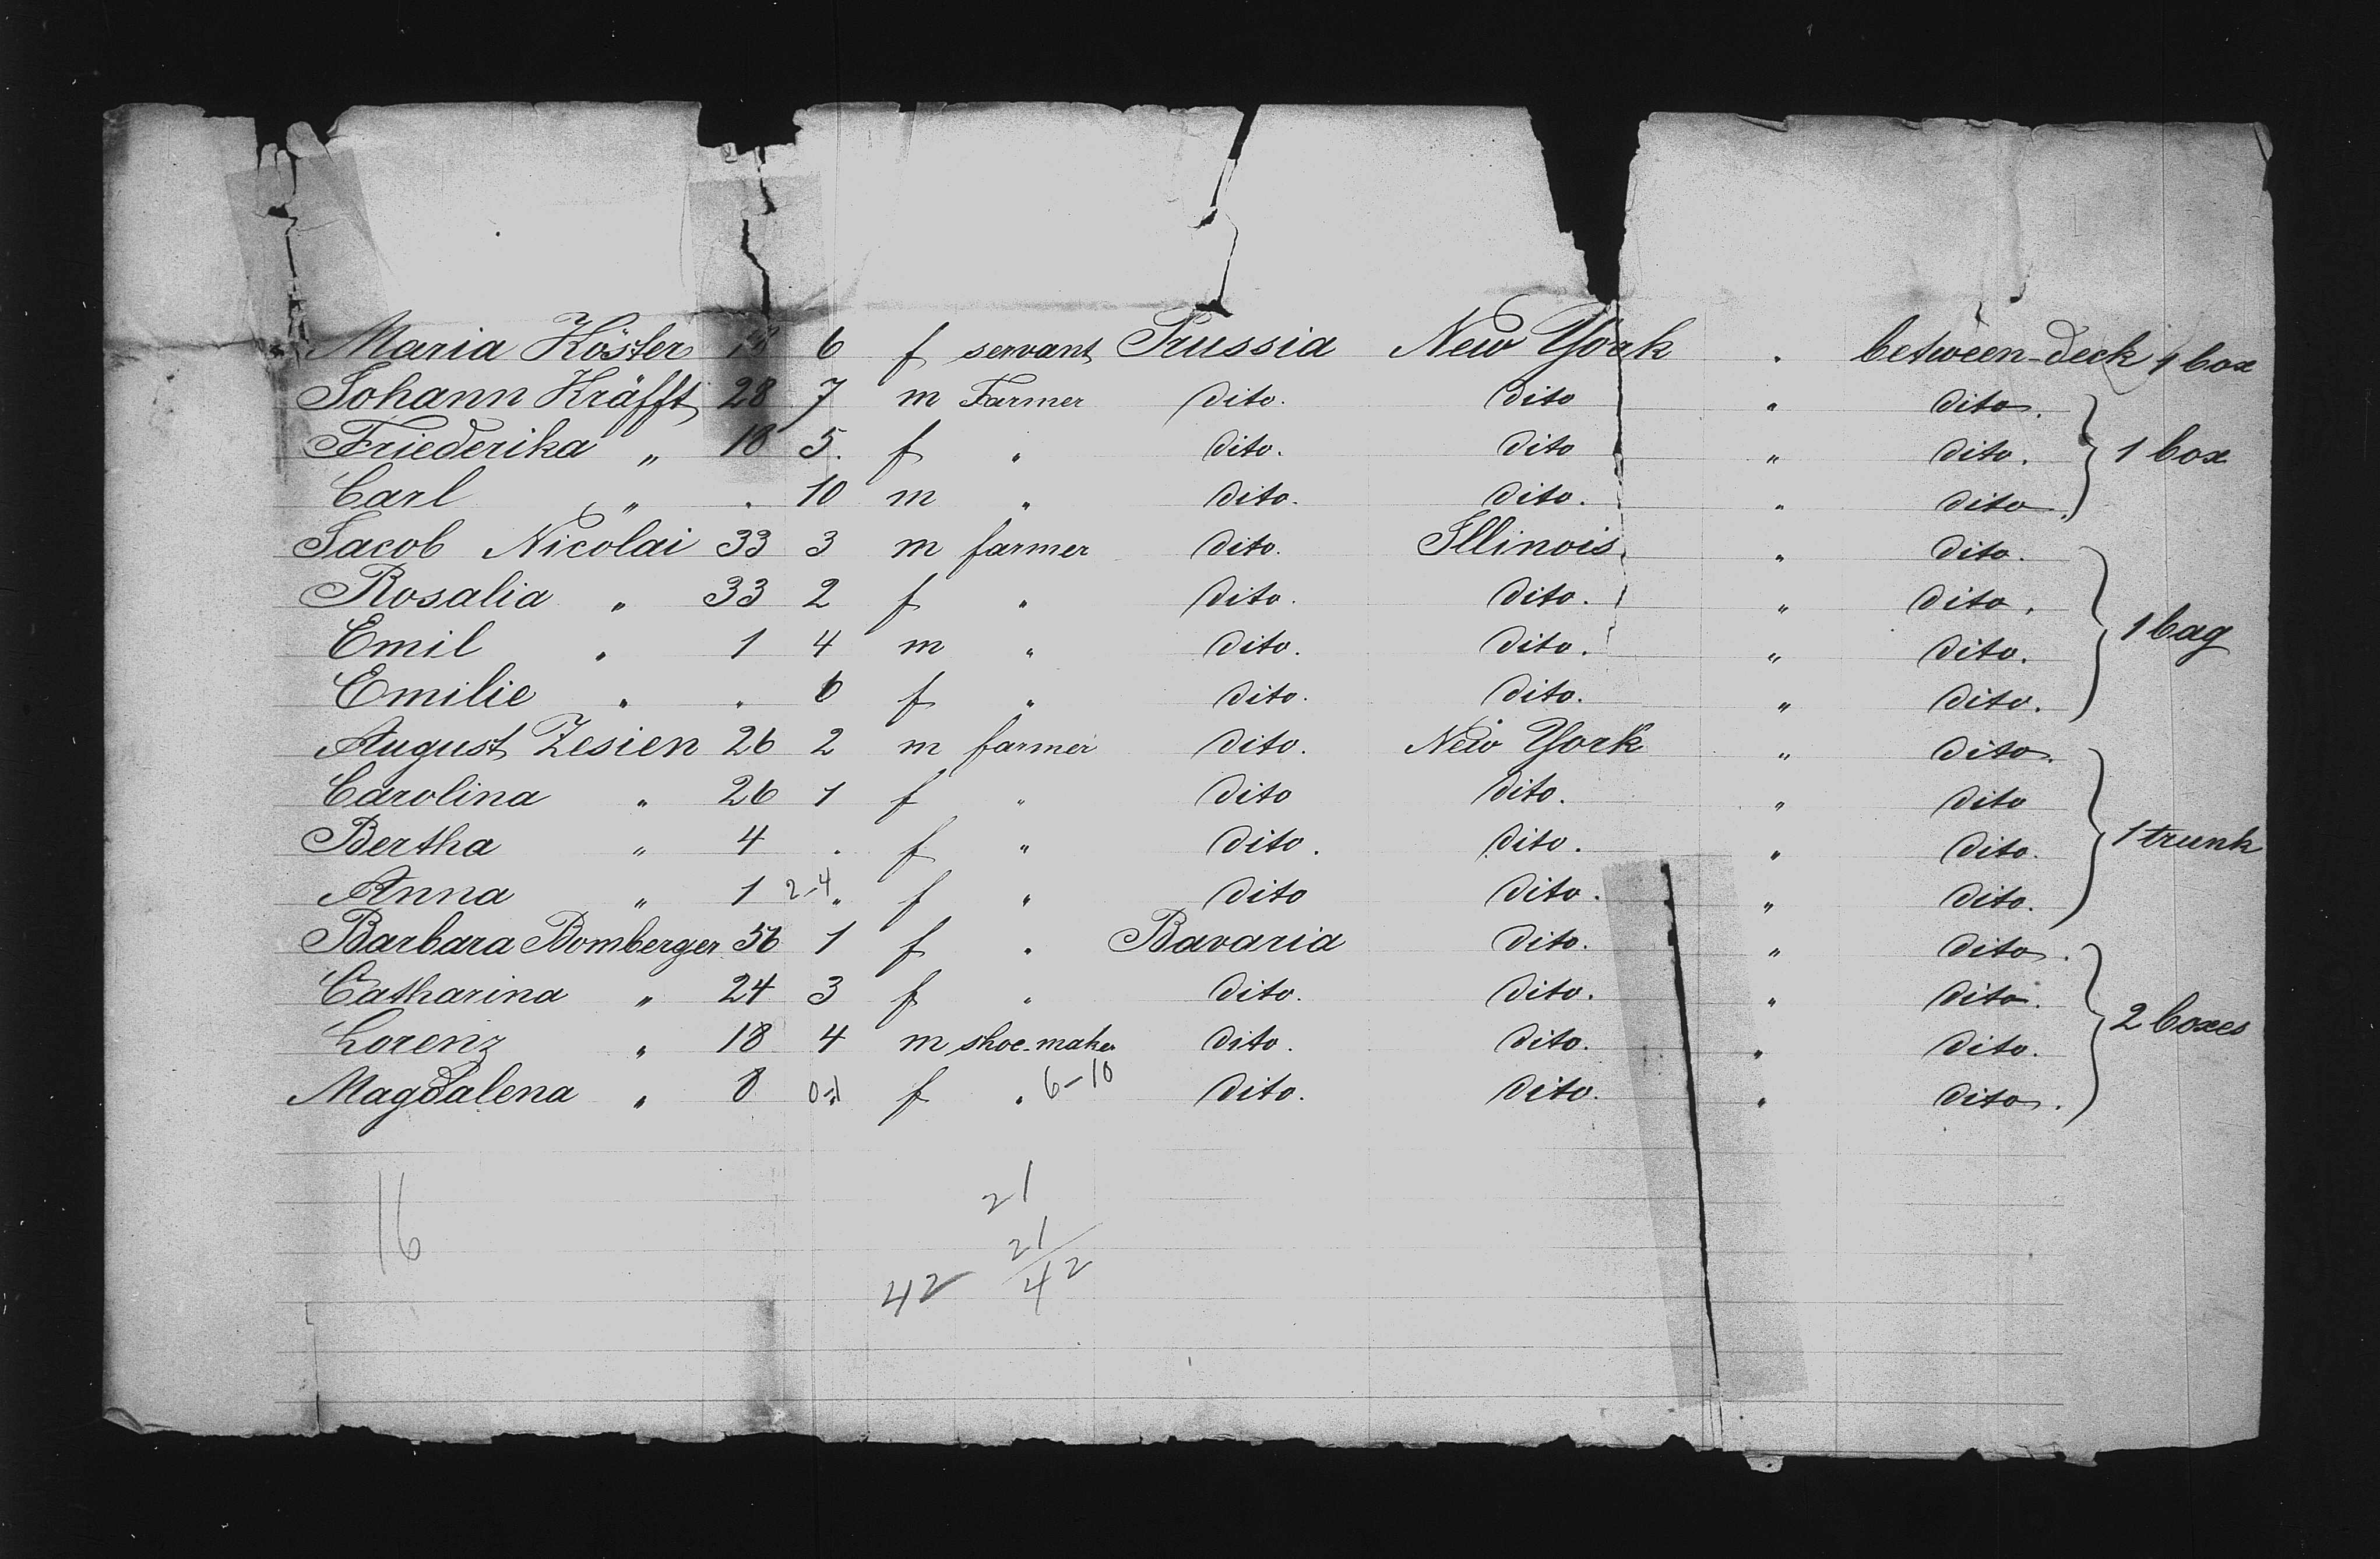 Maria Köster 6 f servant Prussia New York " between-deck 1 box
Johann Kräfft 28 7 m Farmer dito. dito " dito.
Friederika " 18 5. f " dito. dito " dito. 1 box
Carl " " 10 m " dito. dito. " dito.
Jacob Nicolai 33 3 m farmer dito. Illinois " dito.
Rosalia " 33 2 f " dito. dito. " dito.
Emil " 1 4 m " dito. dito. " dito. 1 bag
Emilie " " 6 f " dito. dito. " dito.
August Zesien 26 2 m farmer dito. New York " dito.
Carolina " 26 1 f " dito dito. " dito
Bertha " 4 . f " dito. dito. " dito. 1 trunk
Anna " 1 2-4 " f " dito dito. " dito.
Barbara Bomberger 56 1 f " Bavaria dito. " dito.
Catharina " 24 3 f " dito. dito. " dito.
Lorenz " 18 4 m shoe-maker dito. dito. " dito. 2 boxes
Magdalena " 8 f " 6-10 dito. dito. " dito.
16
21
21
42 42